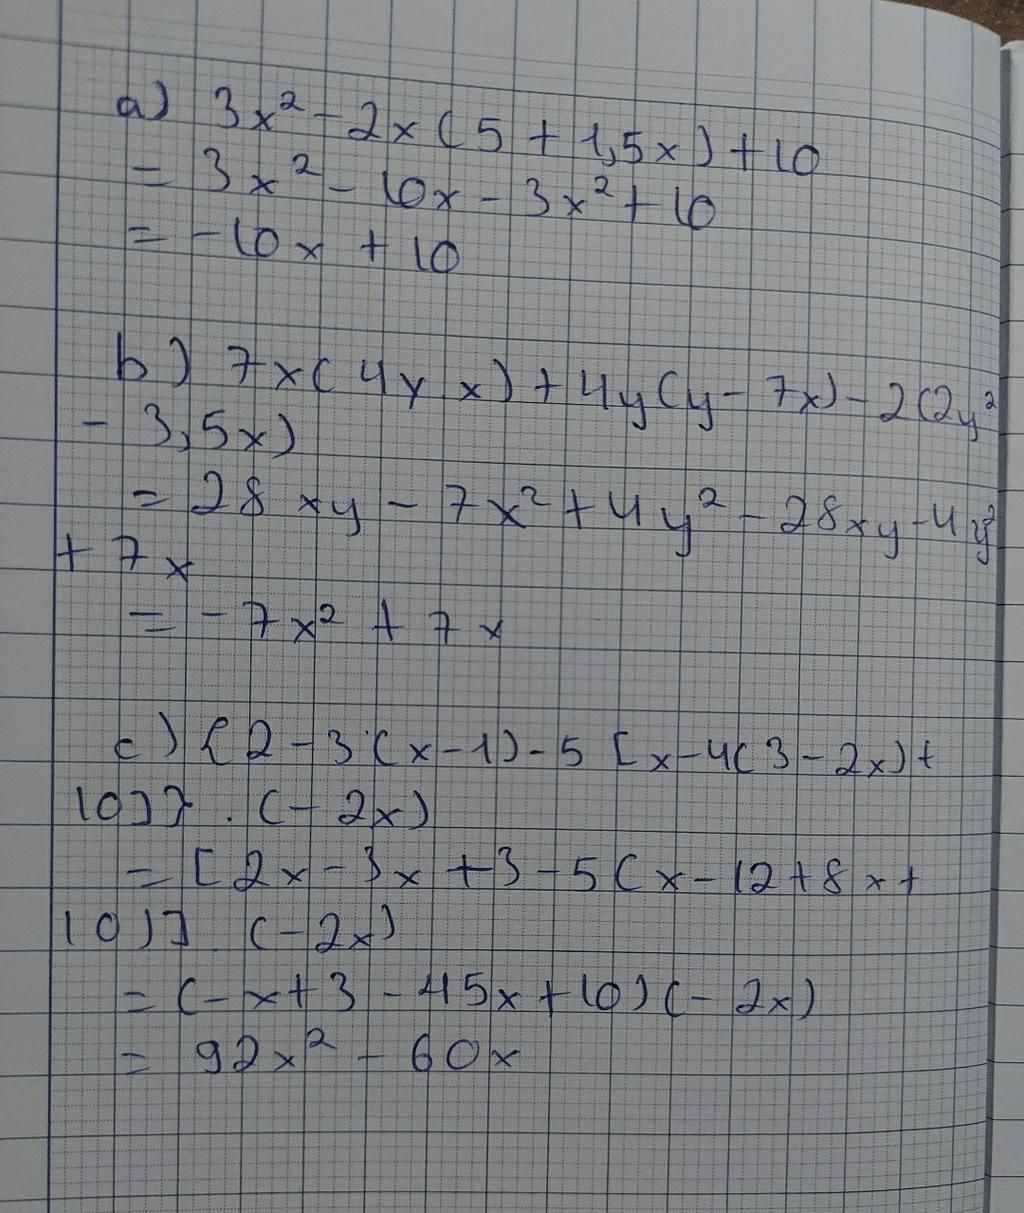 a) 3x² - 2x(5 + 1,5x) + 10
= 3x² - 10x - 3x² + 10
= -10x + 10
b) 7x(4y x) + 4y(y - 7x) - 2(2y²
- 3,5x)
= 28xy - 7x² + 4y² - 28xy - 4y²
+ 7x
= -7x² + 7x
c) {2 - 3(x - 1) - 5[x - 4(3 - 2x) +
10]} . (-2x)
= [2x - 3x + 3 - 5(x - 12 + 8x +
10)] . (-2x)
= (-x + 3 - 45x + 10)(-2x)
= 92x² - 60x